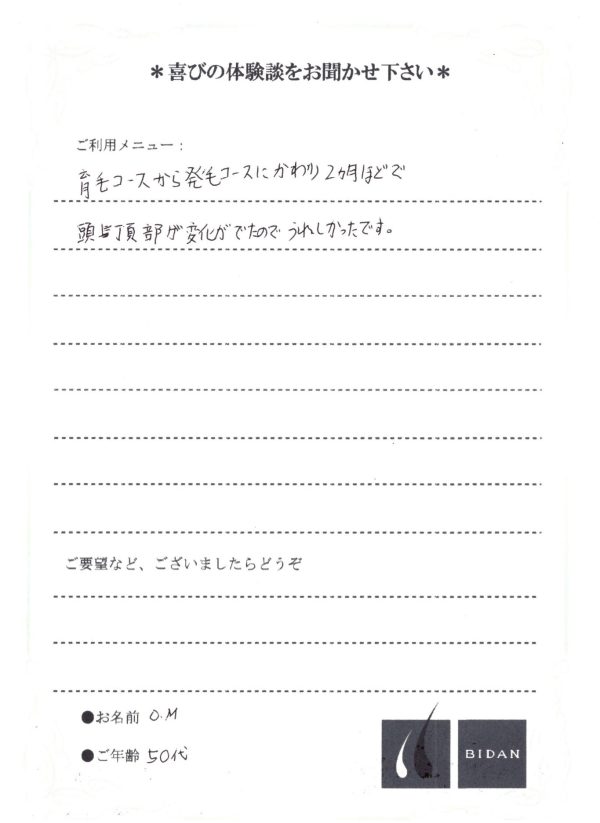 ＊喜びの体験談をお聞かせ下さい＊
ご利用メニュー：
育毛コースから発毛コースにかわり2ヶ月ほどで
頭頂部が変化がでたのでうれしかったです。
ご要望など、ございましたらどうぞ
●お名前 O.M
●ご年齢 50代
BIDAN